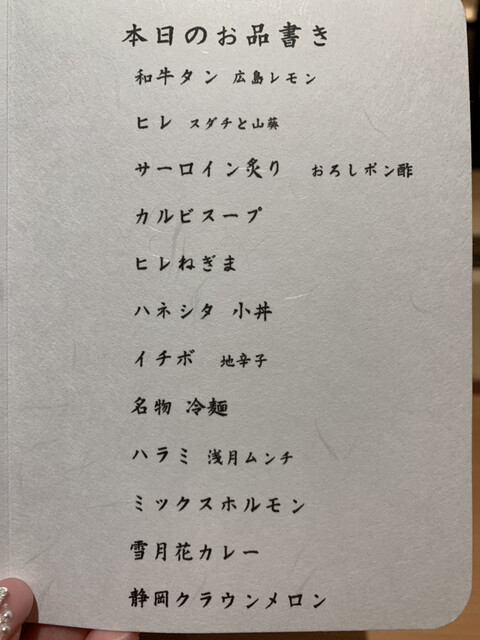 本日のお品書き
和牛タン 広島レモン
ヒレ スダチと山葵
サーロイン炙り おろしポン酢
カルビスープ
ヒレねぎま
ハネシタ 小丼
イチボ 地辛子
名物 冷麺
ハラミ 浅月ムンチ
ミックスホルモン
雪月花カレー
静岡クラウンメロン